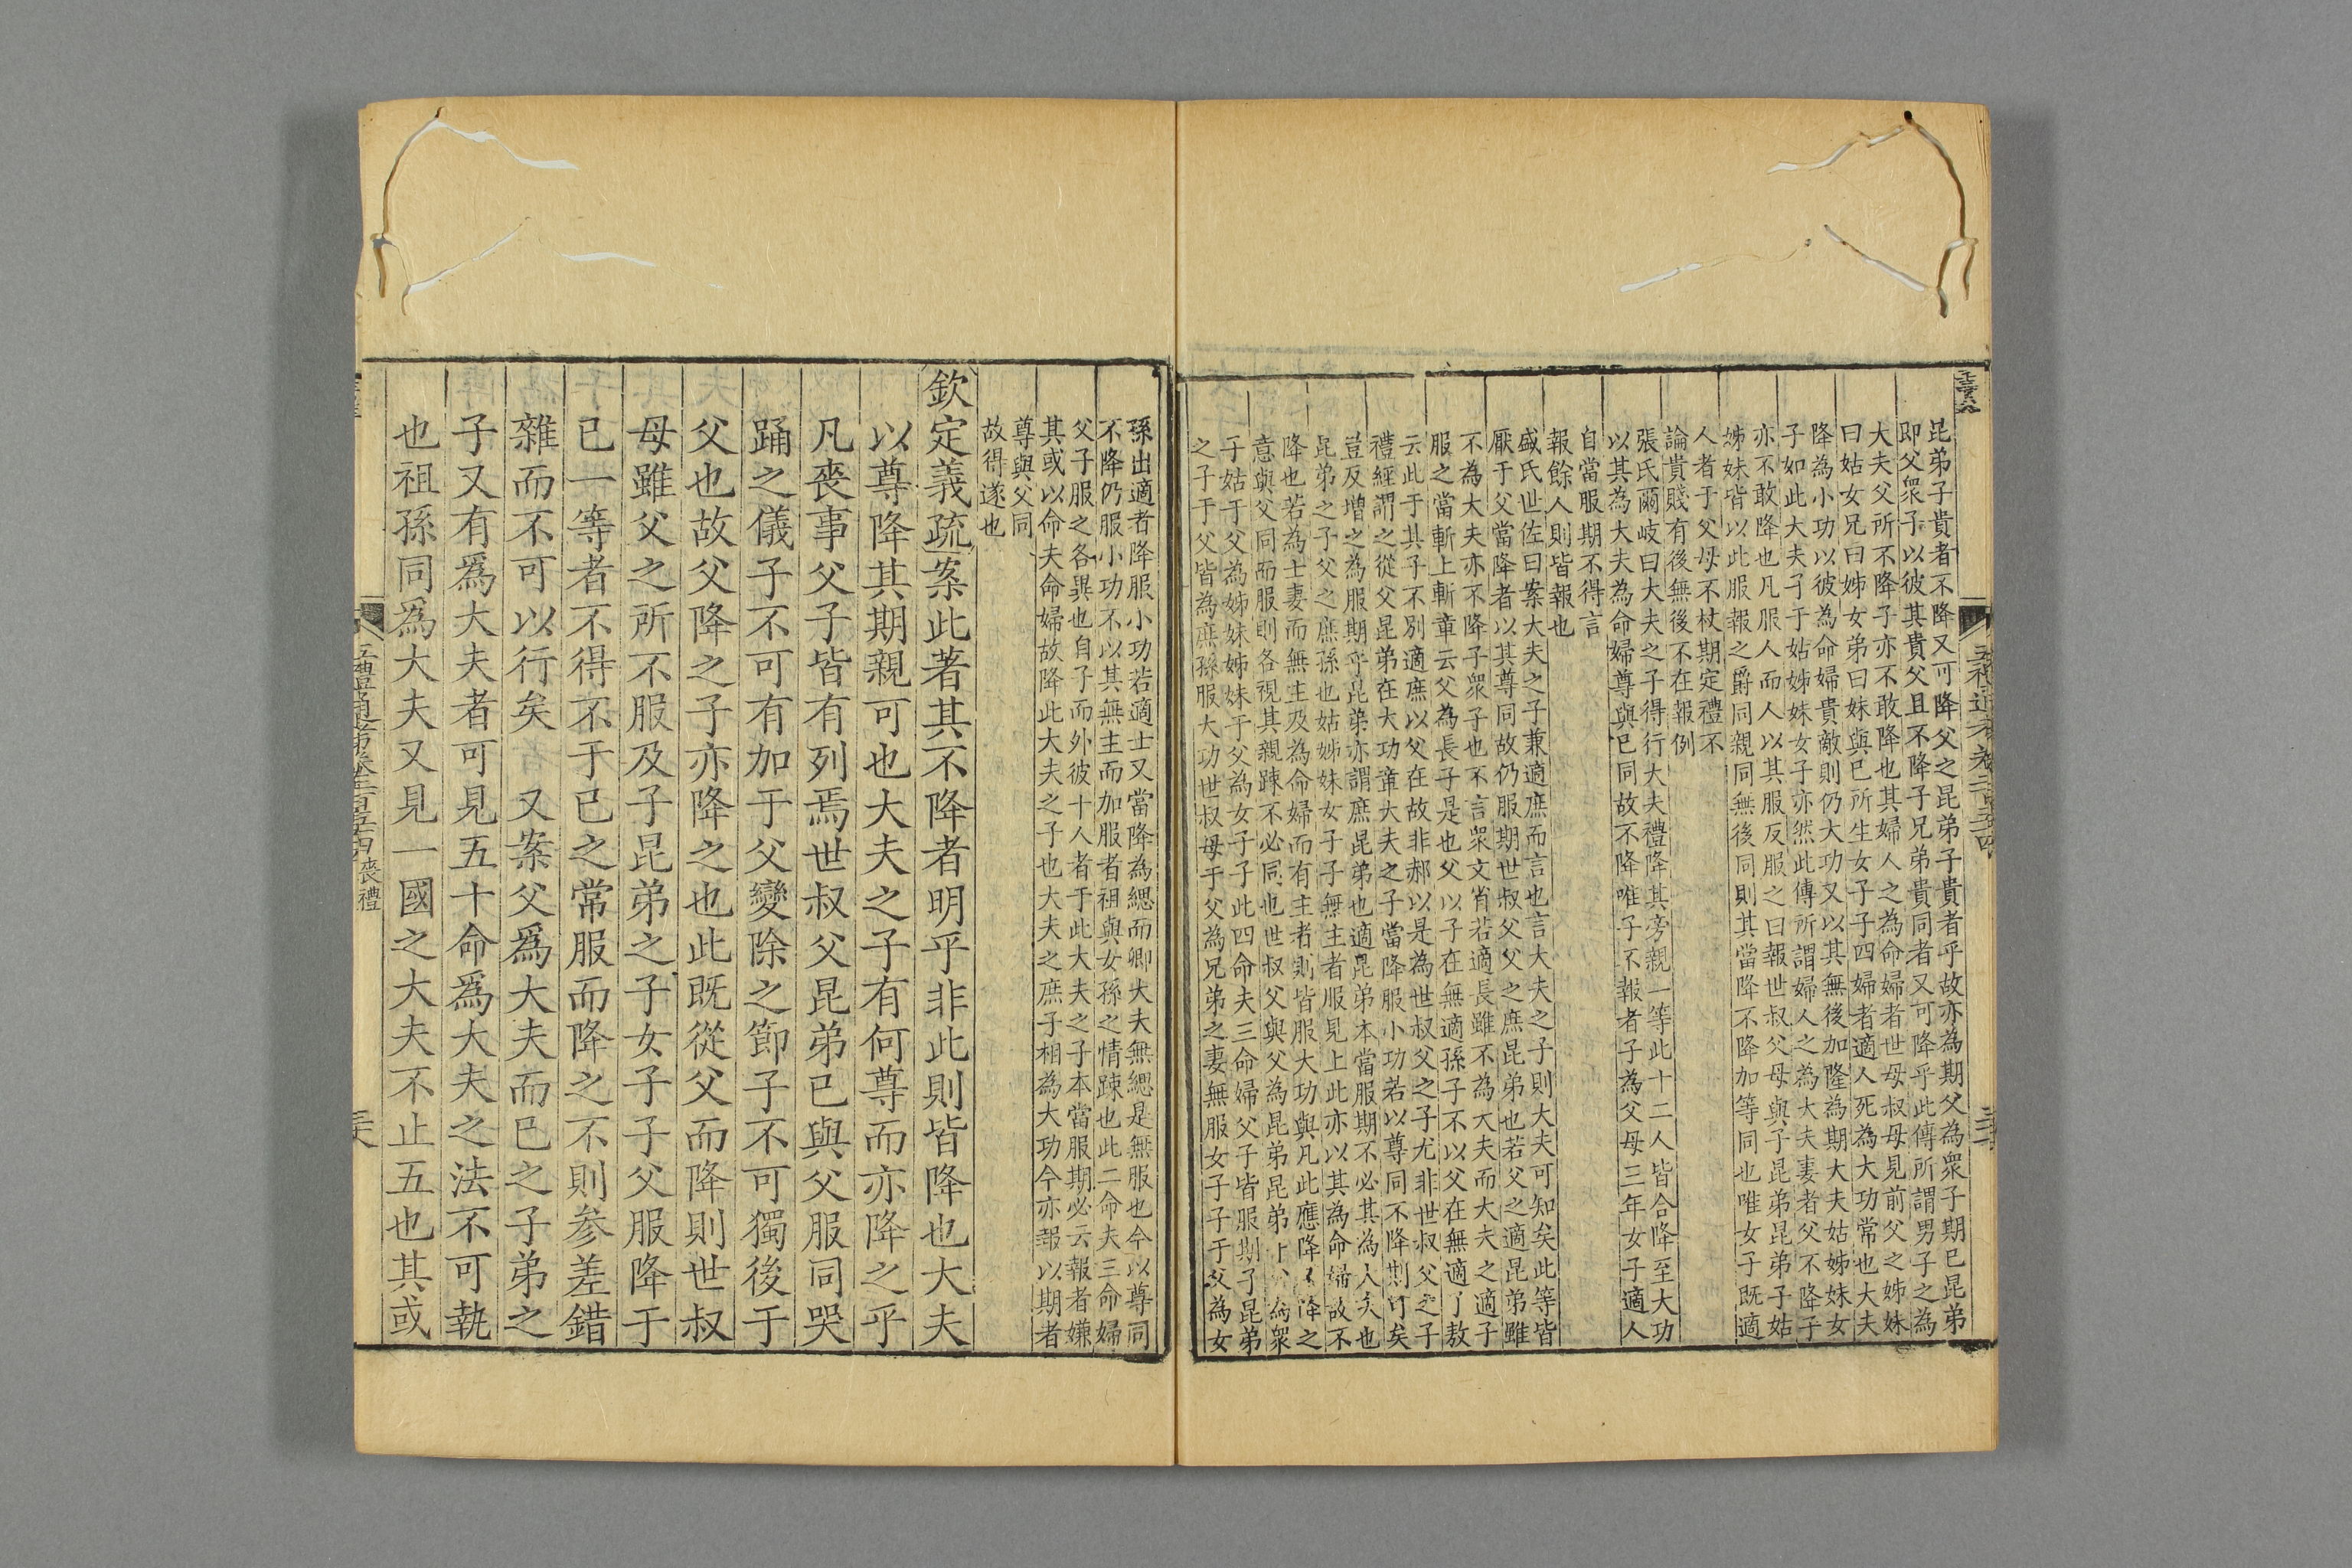 五禮通考卷二百五十四
昆弟子貴者不降又可降父之昆弟子貴者乎故亦為期父為眾子期已昆弟
即父眾子以彼其貴父且不降子兄弟貴同者又可降乎此傳所謂男子之為
大夫父所不降子亦不敢降也其婦人之為命婦者世母叔母見前父之姊妹
曰姑女兄曰姊女弟曰妹與已所生女子子四婦者適人死為大功常也大夫
降為小功以彼為命婦貴敵則仍大功又以其無後加隆為期大夫姑姊妹女
子如此大夫子于姑姊妹女子亦然此傳所謂婦人之為大夫妻者父不降子
亦不敢降也凡服人而人以其服反服之曰報世叔父母與子昆弟昆弟子姑
姊妹皆以此服報之爵同親同無後同則其當降不降加等同也唯女子既適
人者于父母不杖期定禮不
論貴賤有後無後不在報例
張氏爾岐曰大夫之子得行大夫禮降其旁親一等此十二人皆合降至大功
以其為大夫為命婦尊與已同故不降唯子不報者子為父母三年女子適人
自當服期不得言
報餘人則皆報也
盛氏世佐曰案大夫之子兼適庶而言也言大夫之子則大夫可知矣此等皆
厭于父當降者以其尊同故仍服期世叔父父之庶昆弟也若父之適昆弟雖
不為大夫亦不降子眾子也不言眾文省若適長雖不為大夫而大夫之適子
服之當斬上斬章云父為長子是也父以子在無適孫子不以父在無適子敖
云此于其子不別適庶以父在故非郝以是為世叔父之子尤非世叔父之子
禮經謂之從父昆弟在大功章大夫之子當降服小功若以尊同不降期可矣
豈反增之為服期乎昆弟亦謂庶昆弟也適昆弟本當服期不必其為人夫也
昆弟之子父之庶孫也姑姊妹女子子無主者服見上此亦以其為命婦故不
降也若為士妻而無主及為命婦而有主者則皆服大功與凡此應降不降之
意與父同而服則各視其親疎不必同也世叔父與父為昆弟昆弟于父為眾
子姑于父為姊妹姊妹于父為女子子此四命夫三命婦父子皆服期子昆弟
之子于父皆為庶孫服大功世叔母于父為兄弟之妻無服女子子于父為女
孫出適者降服小功若適士又當降為緦而卿大夫無緦是無服也今以尊同
不降仍服小功不以其無主而加服者祖與女孫之情疎也此二命夫三命婦
父子服之各異也自子而外彼十人者于此大夫之子本當服期必云報者嫌
其或以命夫命婦故降此大夫之子也大夫之庶子相為大功今亦報以期者
尊與父同
故得遂也
欽定義疏案此著其不降者明乎非此則皆降也大夫
以尊降其期親可也大夫之子有何尊而亦降之乎
凡喪事父子皆有列焉世叔父昆弟已與父服同哭
踊之儀子不可有加于父變除之節子不可獨後于
父也故父降之子亦降之也此既從父而降則世叔
母雖父之所不服及子昆弟之子女子子父服降于
已一等者不得不于已之常服而降之不則參差錯
雜而不可以行矣　又案父爲大夫而已之子弟之
子又有爲大夫者可見五十命爲大夫之法不可執
也祖孫同爲大夫又見一國之大夫不止五也其或
五禮通考卷二百五十四 喪禮